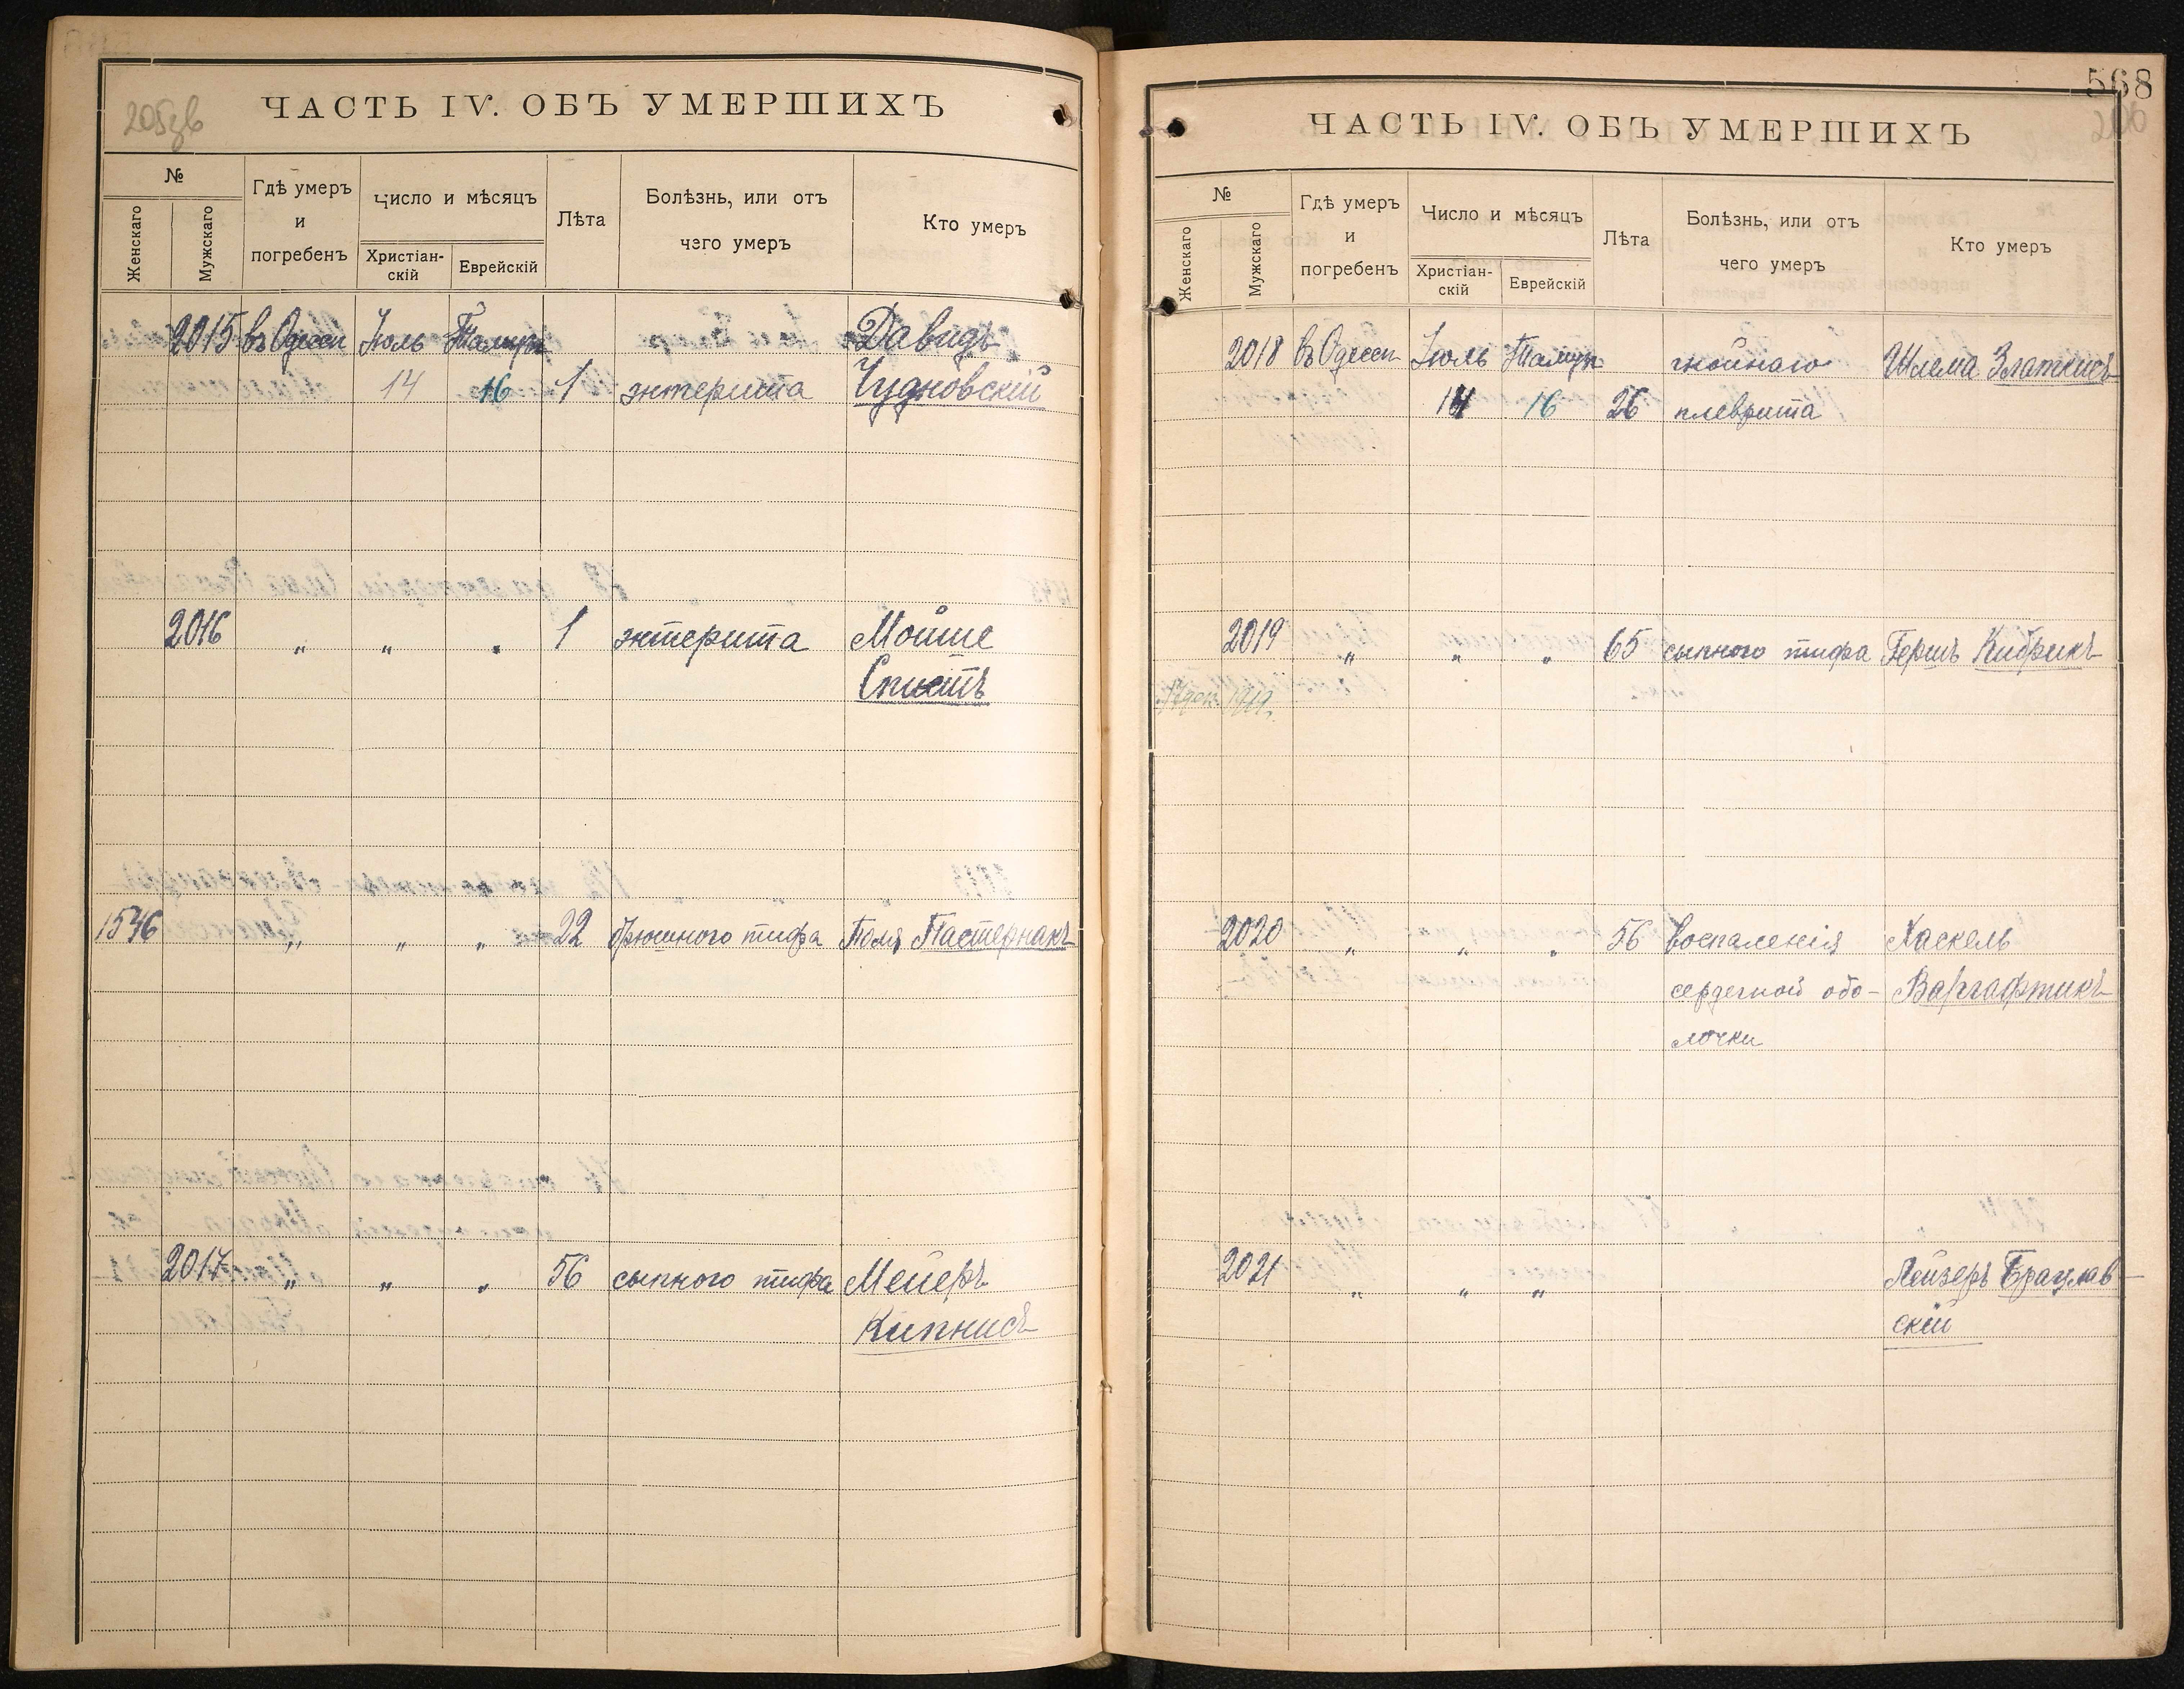 ЧАСТЬ IV. ОБЪ УМЕРШИХЪ
№
Женскаго
Мужскаго
Гдѣ умеръ
и
погребенъ
Число и мѣсяцъ
Христіан-
скій
Еврейскій
Лѣта
Болѣзнь, или отъ
чего умеръ
Кто умеръ
2015 въ Одессѣ Іюль Тамузъ Давидъ
14 16 1 энтерита Чудновскій
2016 „ „ „ 1 энтерита Мойше
Спистъ
1546 „ „ „ 22 брюшного тифа Поля Пастернакъ
2017 „ „ „ 56 сыпного тифа Мейеръ
Кипнисъ
568
206
ЧАСТЬ IV. ОБЪ УМЕРШИХЪ
№
Женскаго
Мужскаго
Гдѣ умеръ
и
погребенъ
Число и мѣсяцъ
Христіан-
скій
Еврейскій
Лѣта
Болѣзнь, или отъ
чего умеръ
Кто умеръ
2018 въ Одессѣ Іюль Тамузъ гнойнаго Шлема Златкисъ
14 16 26 плеврита
2019 „ „ „ 65 сыпного тифа Гершъ Кибрикъ
1919г.
2020 „ „ „ 56 воспаленія Хаскель
сердечной обо- Варгафтикъ
лочки
2021 „ „ „ Лейзеръ Брацлав-
скій